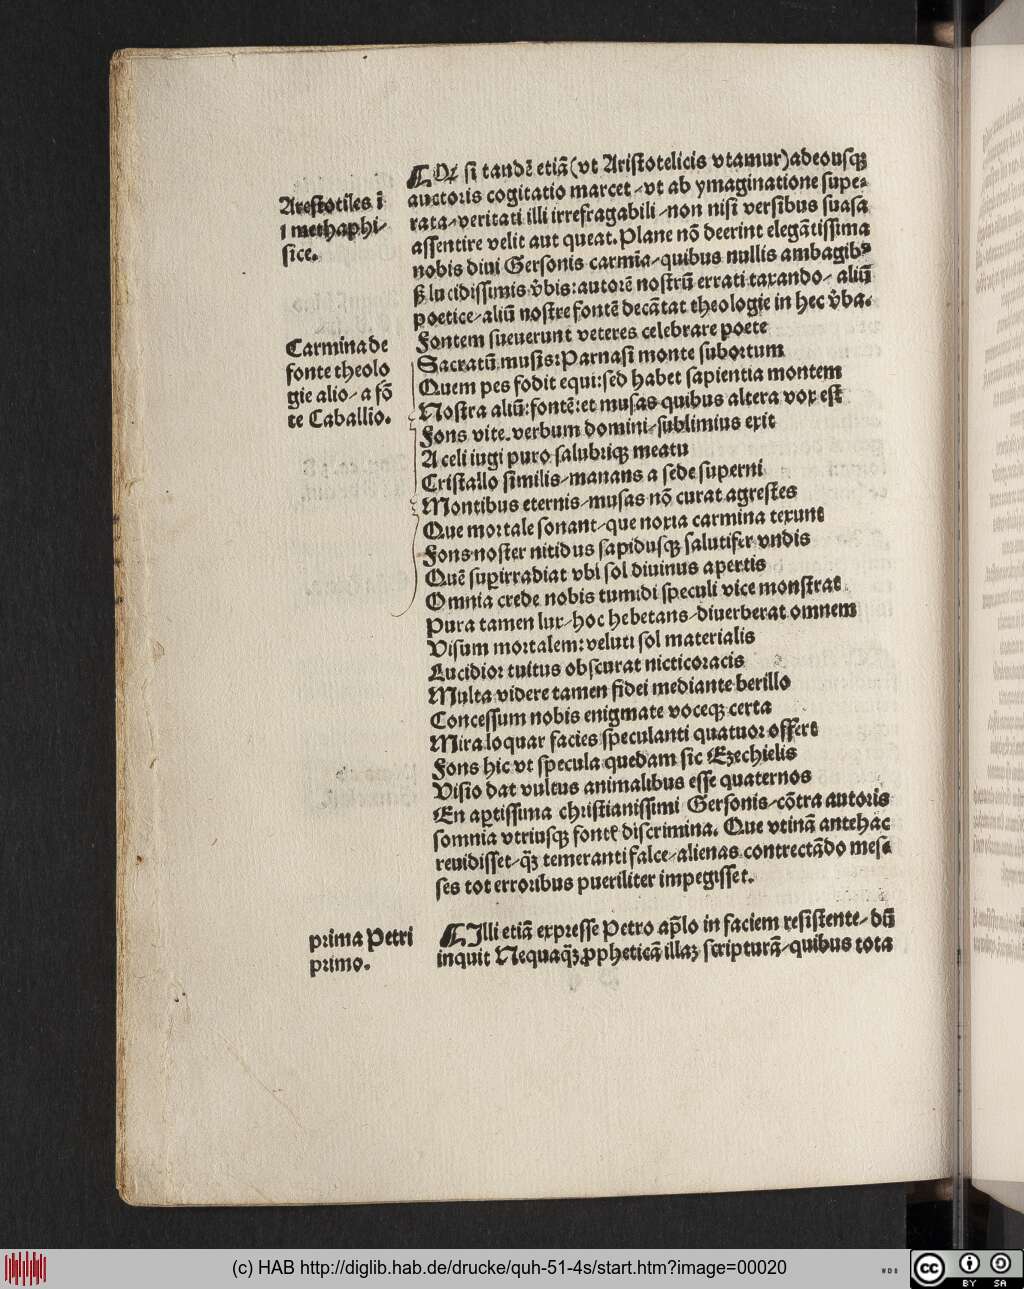 Arestotiles ī
i methaphi⸗
sice.
Carmina de
fonte theolo
gie alio⸗ a fō
te Caballio.
prima Petri
primo.
si tandẽ etiã (vt Aristotelicis vtamur) adeousq̃
auctoris cogitatio marcet ⸗vt ab ymaginatione supe⸗
rata⸗veritati illi irrefragabili ⸗non nisi versibus suasa
assentire velit aut queat. Plane nõ deerint elegãtissima
nobis diui Gersonis carmīa⸗quibus nullis ambagibꝰ
ꝫ lucidissimis v̓bis:autorẽ nostrũ errati taxando⸗ aliũ
poetice⸗aliũ nostre fontẽ decãtat theologie in hec v̓ba.
Fontem sueuerunt veteres celebrare poete
Sacratũ musis: Parnasi monte subortum
Quem pes fodit equi:sed habet sapientia montem
Nostra aliũ:fontẽ:et musas quibus altera vox est
Fons vite.verbum domini⸗sublimius exit
A celi iugi puro salubriqꝫ meatu
Cristallo similis⸗manans a sede superni
Montibus eternis⸗musas nõ curat agrestes
Que mortale sonant⸗que noxia carmina texunt
Fons noster nitidus sapidusqꝫ salutifer vndis
Quẽ supirradiat vbi sol diuinus apertis
Omnia crede nobis tumidi speculi vice monstrat
Pura tamen lux⸗hoc hebetans⸗diuerberat omnem
Visum mortalem: veluti sol materialis
Lucidior tuitus obscurat nicticoracis
Multa videre tamen fidei mediante berillo
Concessum nobis enigmate voceqꝫ certa
Mira loquar facies speculanti quatuor offert
Fons hic vt specula quedam sic Ezechielis
Visio dat vultus animalibus esse quaternos
En aptissima christianissimi Gersonis⸗cõtra autoris
somnia vtriusqꝫ fontẽ discrimina. Que vtinã antehac
reuidisset⸗q̃ꝫ temeranti falce⸗alienas contrectãdo mes⸗
ses tot erroribus pueriliter impegisset.
Illi etiã expresse Petro ap̃lo in faciem resistente⸗ dũ
inquit Nequaq̃ꝫ ꝓpheticã illaꝫ scripturã⸗quibus tota
(c) HAB http://diglib.hab.de/drucke/quh-51-4s/start.htm?image=00020
WDB
cc
BY SA